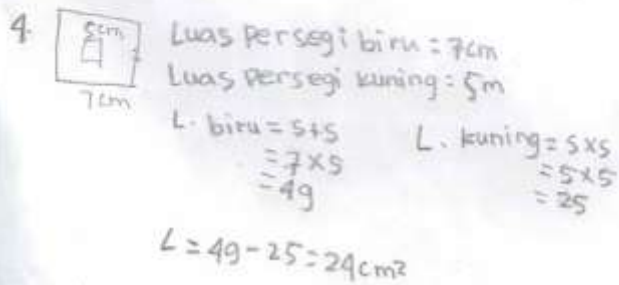 4.
5cm
7cm
Luas persegi biru = 7cm
Luas persegi kuning = 5m
L. biru = s+s
= 7×5
= 49
L. kuning = s×s
= 5×5
= 25
L = 49 - 25 = 24cm²